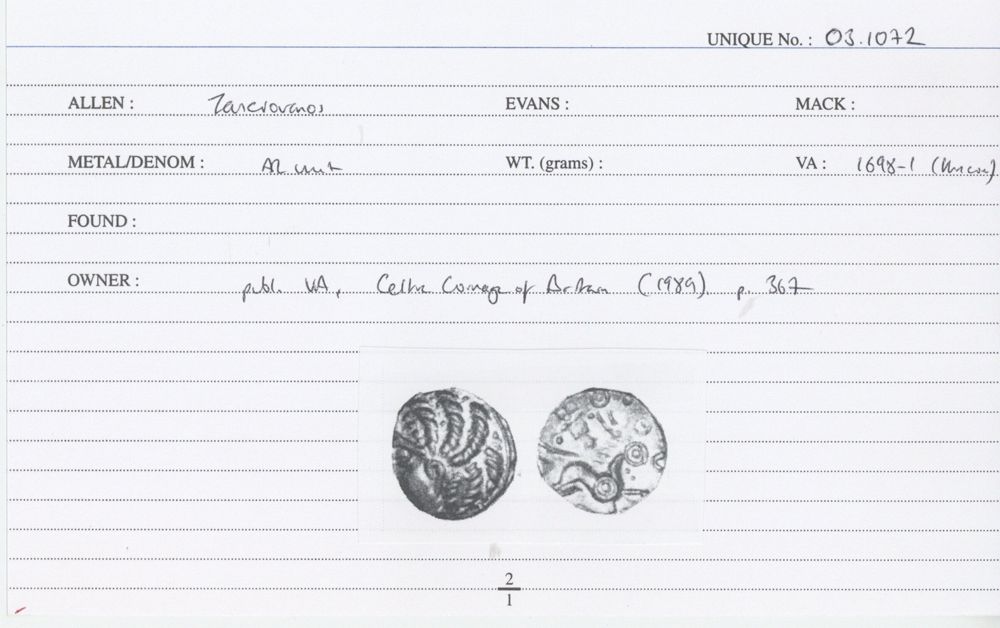 UNIQUE No. : 03.1072
ALLEN : EVANS : MACK :
METAL/DENOM : AR unit WT. (grams) : VA : 1698-1
FOUND :
OWNER : publ. VA, Celtic Coinage of Britain (1989) p. 367
2
1